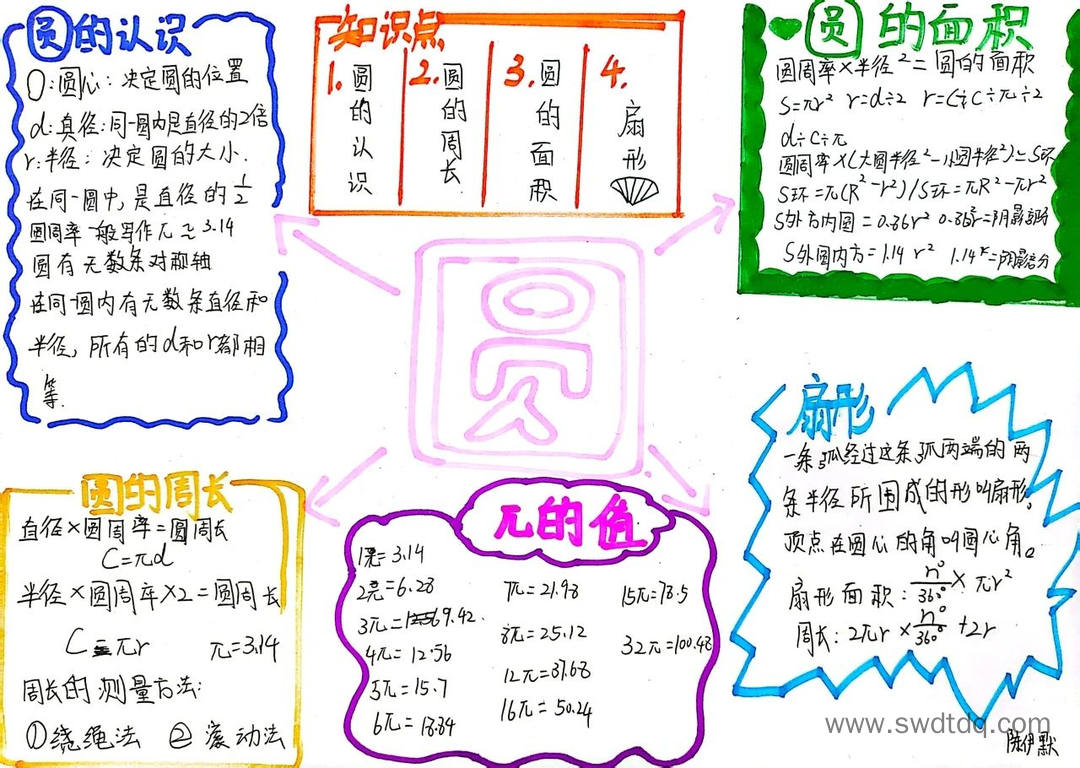 圆的认识
O:圆心:决定圆的位置
d:直径:同一圆内是直径的2倍
r:半径:决定圆的大小.
在同一圆中,是直径的1/2
圆周率一般写作π≈3.14
圆有无数条对称轴
在同一圆内有无数条直径和
半径,所有的d和r都相
等.
知识点
1.圆的认识
2.圆的周长
3.圆的面积
4.扇形
圆的面积
圆周率×半径²=圆的面积
S=πr² r=d÷2 r=C÷π÷2
d÷C÷π
圆周率×(大圆半径²-小圆半径²)=S环
S环=π(R²-r²)/S环=πR²-πr²
S外方内圆=0.86r² 0.86r²=阴影部分
S外圆内方=1.14r² 1.14r²=阴影部分
圆
圆的周长
直径×圆周率=圆周长
C=πd
半径×圆周率×2=圆周长
C=πr π=3.14
周长的测量方法:
①绕绳法 ②滚动法
π的值
1π=3.14
2π=6.28
3π=9.42.
4π=12.56
5π=15.7
6π=18.84
7π=21.98
8π=25.12
12π=37.68
16π=50.24
15π=78.5
32π=100.48
扇形
一条弧经过这条弧两端的两
条半径所围成的形叫扇形。
顶点在圆心的角叫圆心角。
扇形面积:n°/360°×πr²
周长:2πr×n°/360°+2r
www.swdtdq.com
陈伊默